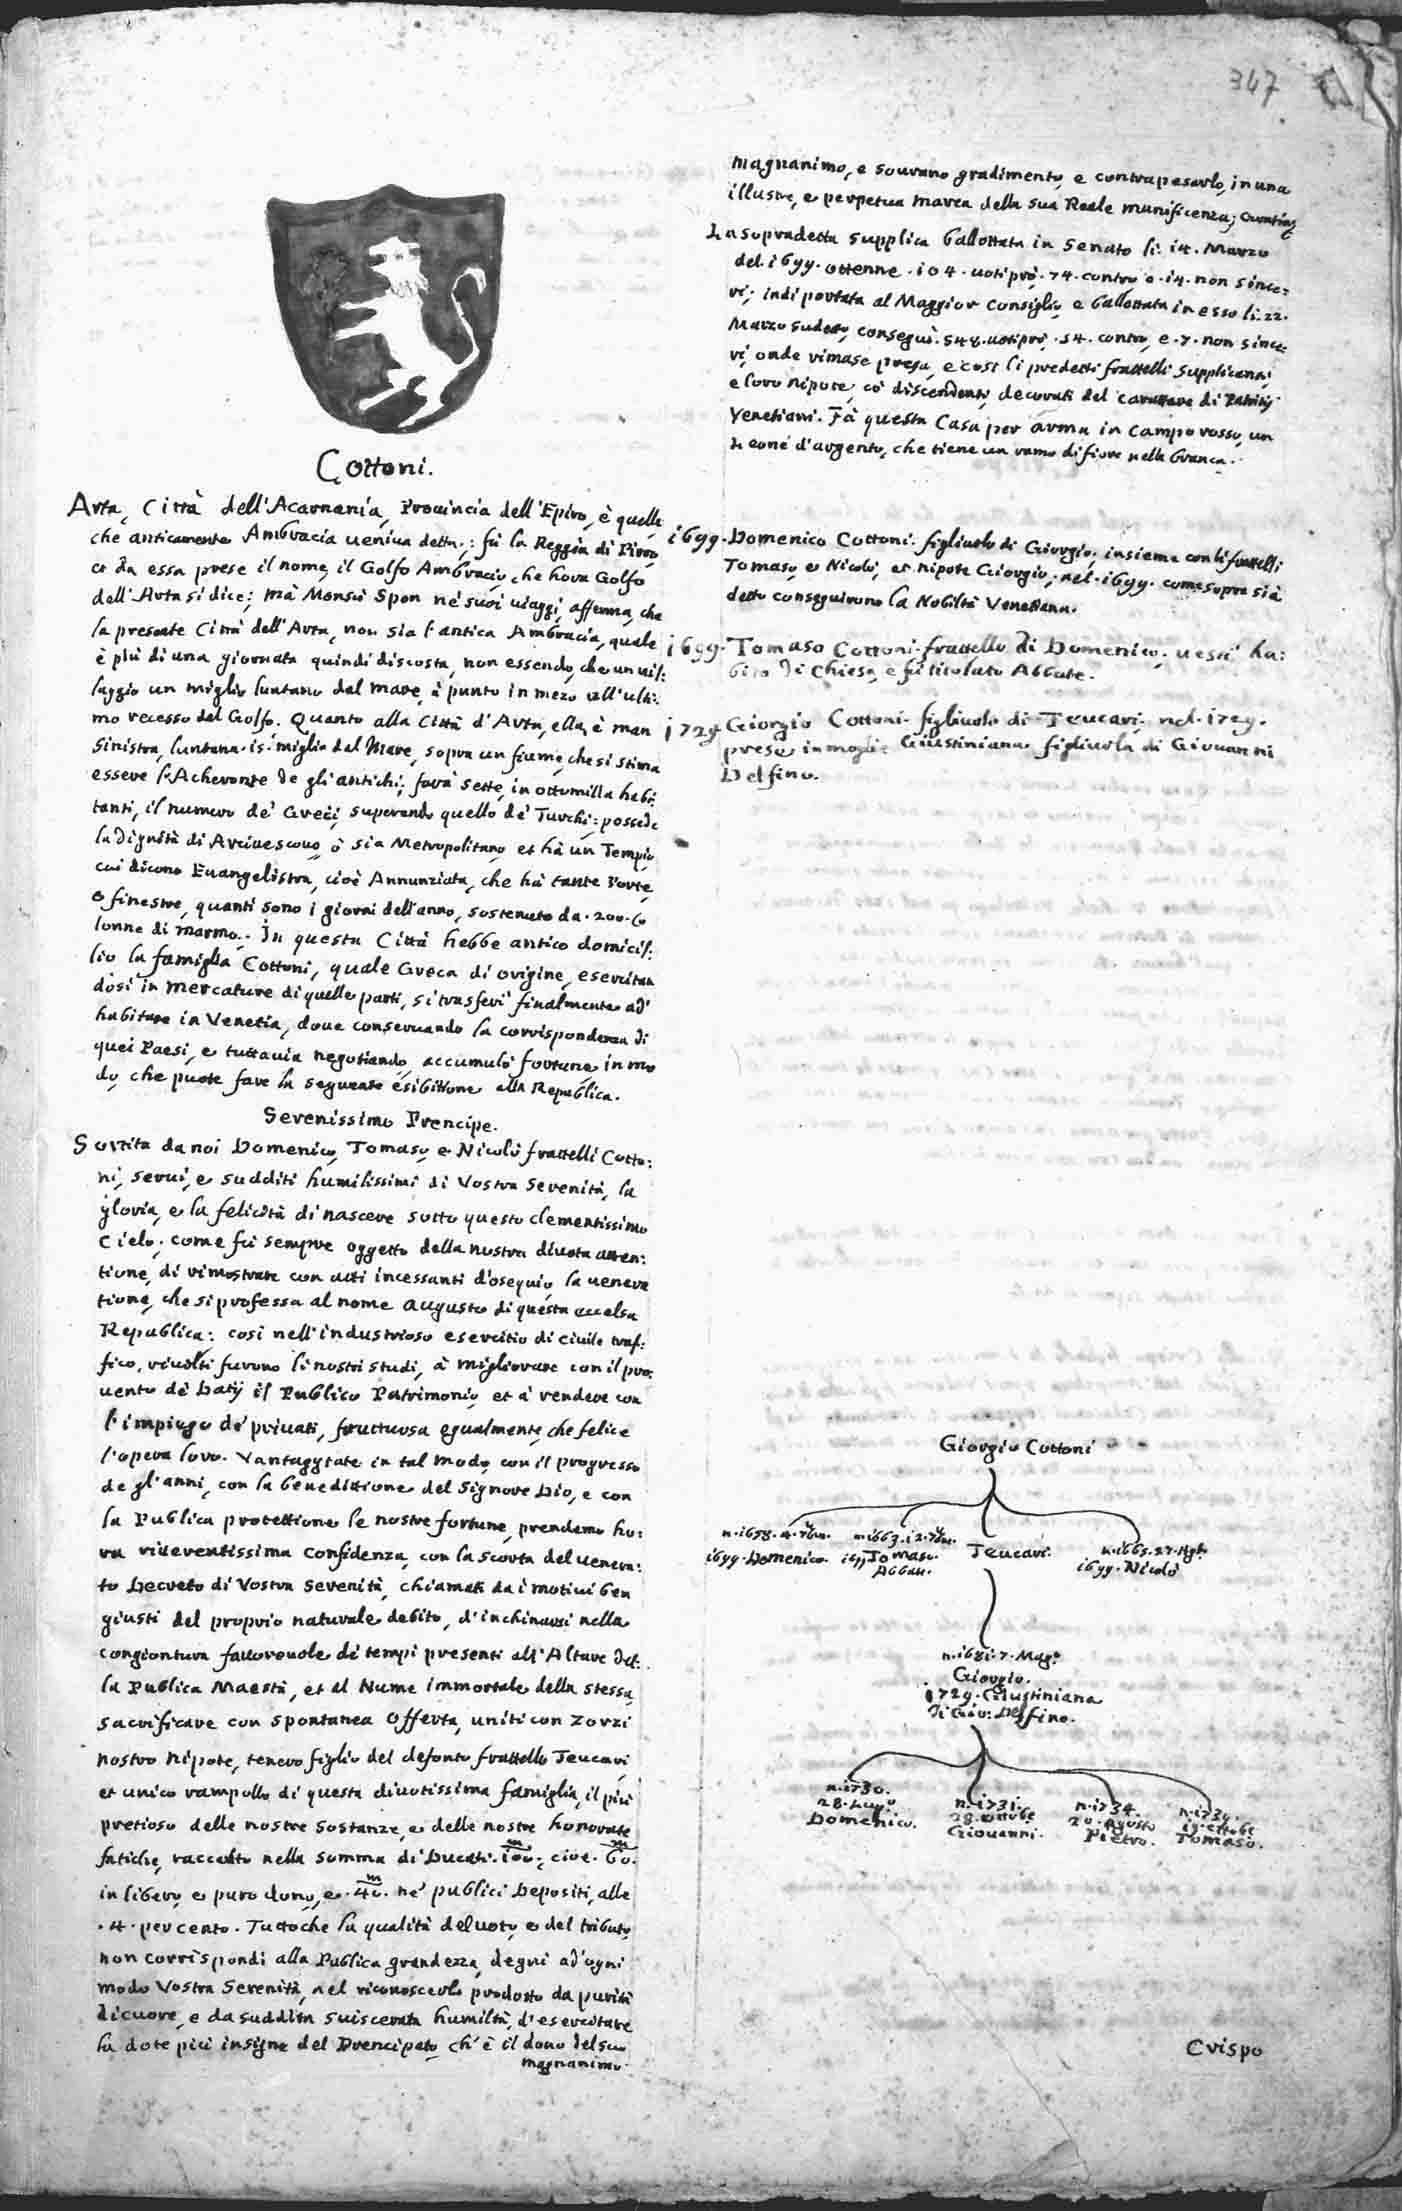 347
Cottoni.
Arta, Città dell'Acarnania, Prouincia dell'Epiro, è quella
che anticamente Ambracia ueniua detta: fù la Reggia di Pirro,
et da essa prese il nome, il Golfo Ambracio, che hora Golfo
dell'Arta si dice; mà Monsù Spon nè suoi uiaggi, afferma, che
la presente Città dell'Arta, non sia l'antica Ambracia, quale
è più di una giornata quindi discosta, non essendo, che un uil:
laggio un miglio luntano dal mare, à punto in mezo all'ulti:
mo recesso del Golfo. Quanto alla Città d'Arta, ella, è man
sinistra, luntana .15. miglia dal Mare, sopra un fiume, che si stima
essere l'Acheronte de gli antichi; farà sette, in ottomilla habi:
tanti, il numero de' Greci, superando quello de' Turchi: possede
la dignità di Arciuescouo, ò sia Metropolitano, et hà un Tempio,
cui dicono Euangelistra, cioè Annunziata, che hà tante Porte,
e finestre, quanti sono i giorni dell'anno, sostenuto da .200. Co
lonne di marmo. In questa Città hebbe antico domicil:
lio la famiglia Cottoni, quale Greca di origine, esercitan
dosi in mercature di quelle parti, si trasferì finalmente ad'
habitare in Venetia, doue conseruando la corrispondenza di
quei Paesi, e tuttauia negotiando, accumulò fortune, in mo
do, che puote fare la seguente esibittione alla Republica.
Serenissimo Prencipe.
Sortita da noi Domenico, Tomaso, e Nicolò frattelli Cotto:
ni, serui, e sudditi humilissimi di Vostra Serenità, la
gloria, e la felicità di nascere sotto questo clementissimo
Cielo; come fù sempre oggetto della nostra diuota atten:
tione, di rimostrare con atti incessanti d'osequio, la uenera
tione, che si professa al nome augusto di questa eccelsa
Republica: così nell'industrioso esercitio di ciuile traf:
fico, riuolti furono li nostri studi, à migliorare con il pro:
uento de' Datij il Publico Patrimonio, et à rendere con
l'impiego de' priuati, fruttuosa egualmente, che felice
l'opera loro. Vantaggiate in tal modo, con il progresso
de gl'anni, con la benedittione del Signore Dio, e con
la Publica protettione le nostre fortune, prendemo ho:
ra riuerentissima confidenza, con la scorta del uenera:
to Decreto di Vostra Serenità, chiamati da i motiui ben
giusti del proprio naturale debito, d'inchinarsi nella
congiontura fauoreuole de' tempi presenti all'Altare del:
la Publica Maestà, et al Nume immortale della stessa,
sacrificare con spontanea offerta, uniti con Zorzi
nostro Nipote, tenero figlio del defonto frattello Teucari,
et unico rampollo di questa diuotissima famiglia, il più
pretioso delle nostre sostanze, e delle nostre honorate
fatiche, raccolto nella summa di Ducati. 100.m; cioè. 60.m
in libero, e puro dono, e .40.m ne' publici Depositi, alle
.4. per cento. Tuttoche la qualità del uoto, e del tributo,
non corrispondi alla Publica grandezza, degni ad'ogni
modo Vostra Serenità, nel riconoscerlo prodotto da purità
di cuore, e da suddita suiscerata humiltà, d'esercitare
la dote più insigne del Prencipato, ch'è il dono del suo
magnanimo
magnanimo, e sourano gradimento, e contrapesarlo, in una
illustre, e perpetua marca della sua Reale munificenza;
La sopradetta supplica ballottata in Senato li. 14. Marzo
del. 1699. ottenne .104. uoti prò. 74. contro e .14. non since:
ri; indi portata al Maggior Consiglio, e ballottata in esso li. 22.
Marzo sudetto, conseguì .548. uoti prò, .54. contro, e .7. non since:
ri, onde rimase presa, e così li predetti frattelli supplicanti,
e loro Nipote, co' discendenti, decorati del carattere di Patritij
Venetiani. Fà questa Casa per arma in campo rosso, un
Leone d'argento, che tiene un ramo di fiore nella branca.
1699. Domenico Cottoni. figliuolo di Giorgio, insieme con li frattelli
Tomaso, e Nicolò, et nipote Giorgio, nel. 1699. come sopra si è
detto conseguirono la Nobiltà Venetiana.
1699. Tomaso Cottoni. frattello di Domenico, uestì ha:
bito di Chiesa, e fù titolato Abbate.
1729. Giorgio Cottoni. figliuolo di Teucari, nel. 1729.
prese in moglie Giustiniana figliuola di Giouanni
Delfino.
Giorgio Cottoni
n. 1658. 4. 7bre. n. 1663. 12. 7bre. Teucari. n. 1665. 27. Agto
1699. Domenico. 1699 Tomaso. Abbate. 1699. Nicolò
n. 1681. 7. Mago
Giorgio.
1729. Giustiniana
di Gio: Delfino.
n. 1730. 28. Lugo Domenico.
n. 1731. 29. ottobre Giouanni.
n. 1734. 20. Agosto Pietro.
ottobre Tomaso.
Crispo